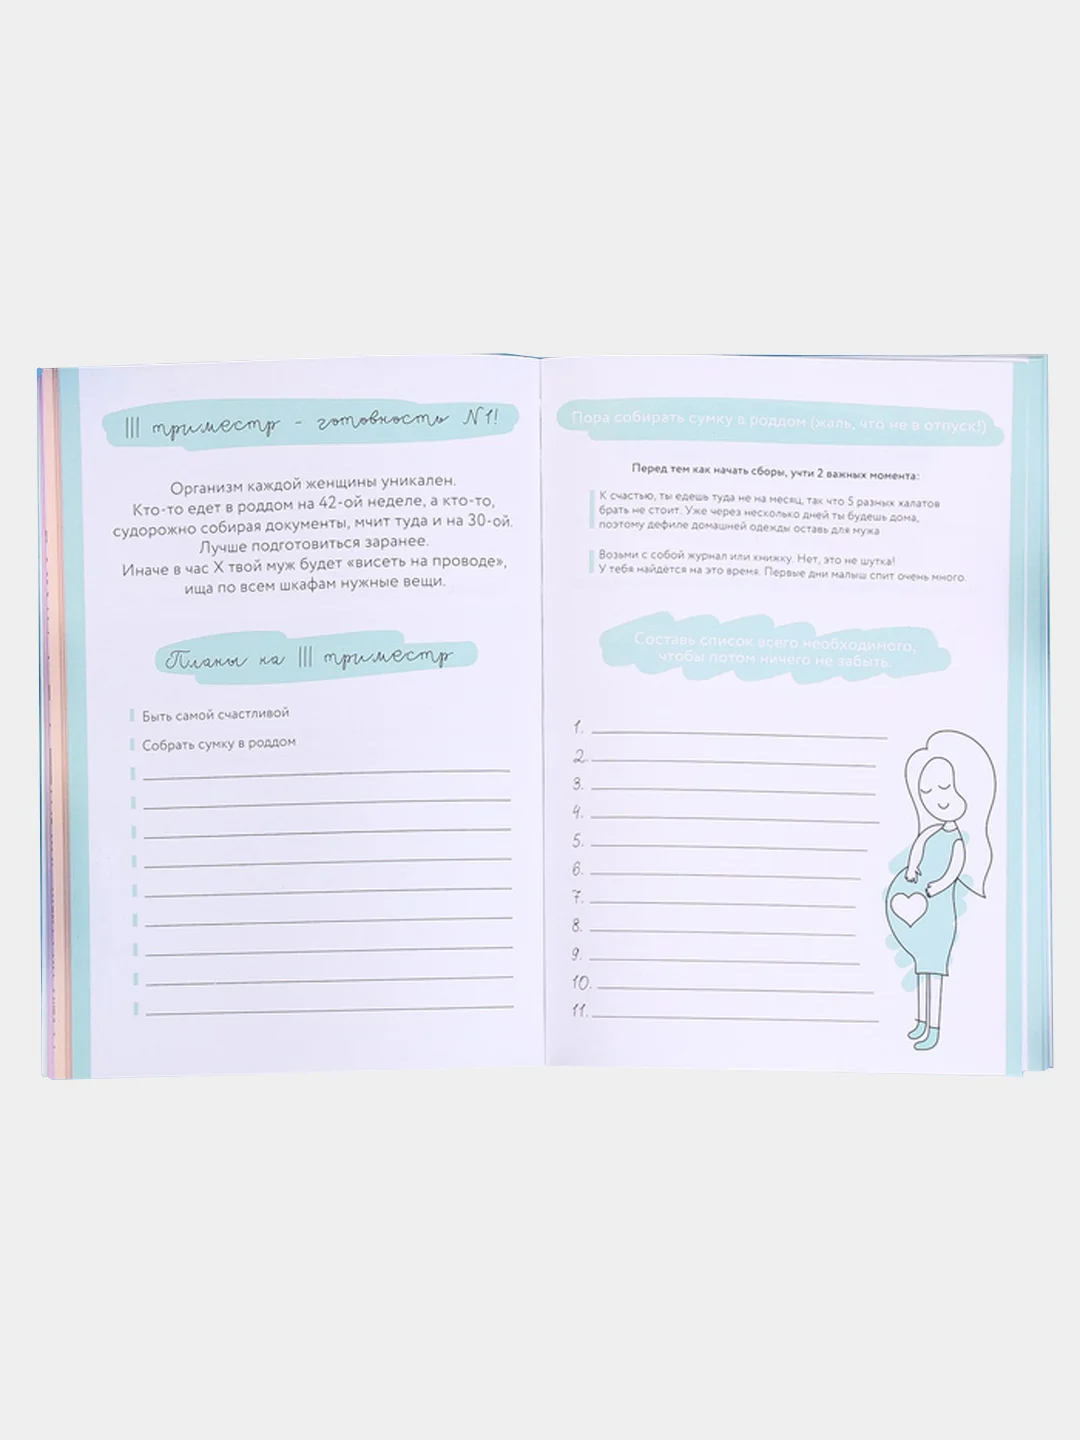 III триместр - готовность №1!
Организм каждой женщины уникален.
Кто-то едет в роддом на 42-ой неделе, а кто-то,
судорожно собирая документы, мчит туда и на 30-ой.
Лучше подготовиться заранее.
Иначе в час Х твой муж будет «висеть на проводе»,
ища по всем шкафам нужные вещи.
Планы на III триместр
Быть самой счастливой
Собрать сумку в роддом
Пора собирать сумку в роддом (жаль, что не в отпуск!)
Перед тем как начать сборы, учти 2 важных момента:
К счастью, ты едешь туда не на месяц, так что 5 разных халатов
брать не стоит. Уже через несколько дней ты будешь дома,
поэтому дефиле домашней одежды оставь для мужа
Возьми с собой журнал или книжку. Нет, это не шутка!
У тебя найдётся на это время. Первые дни малыш спит очень много.
Составь список всего необходимого,
чтобы потом ничего не забыть.
1.
2.
3.
4.
5.
6.
7.
8.
9.
10.
11.